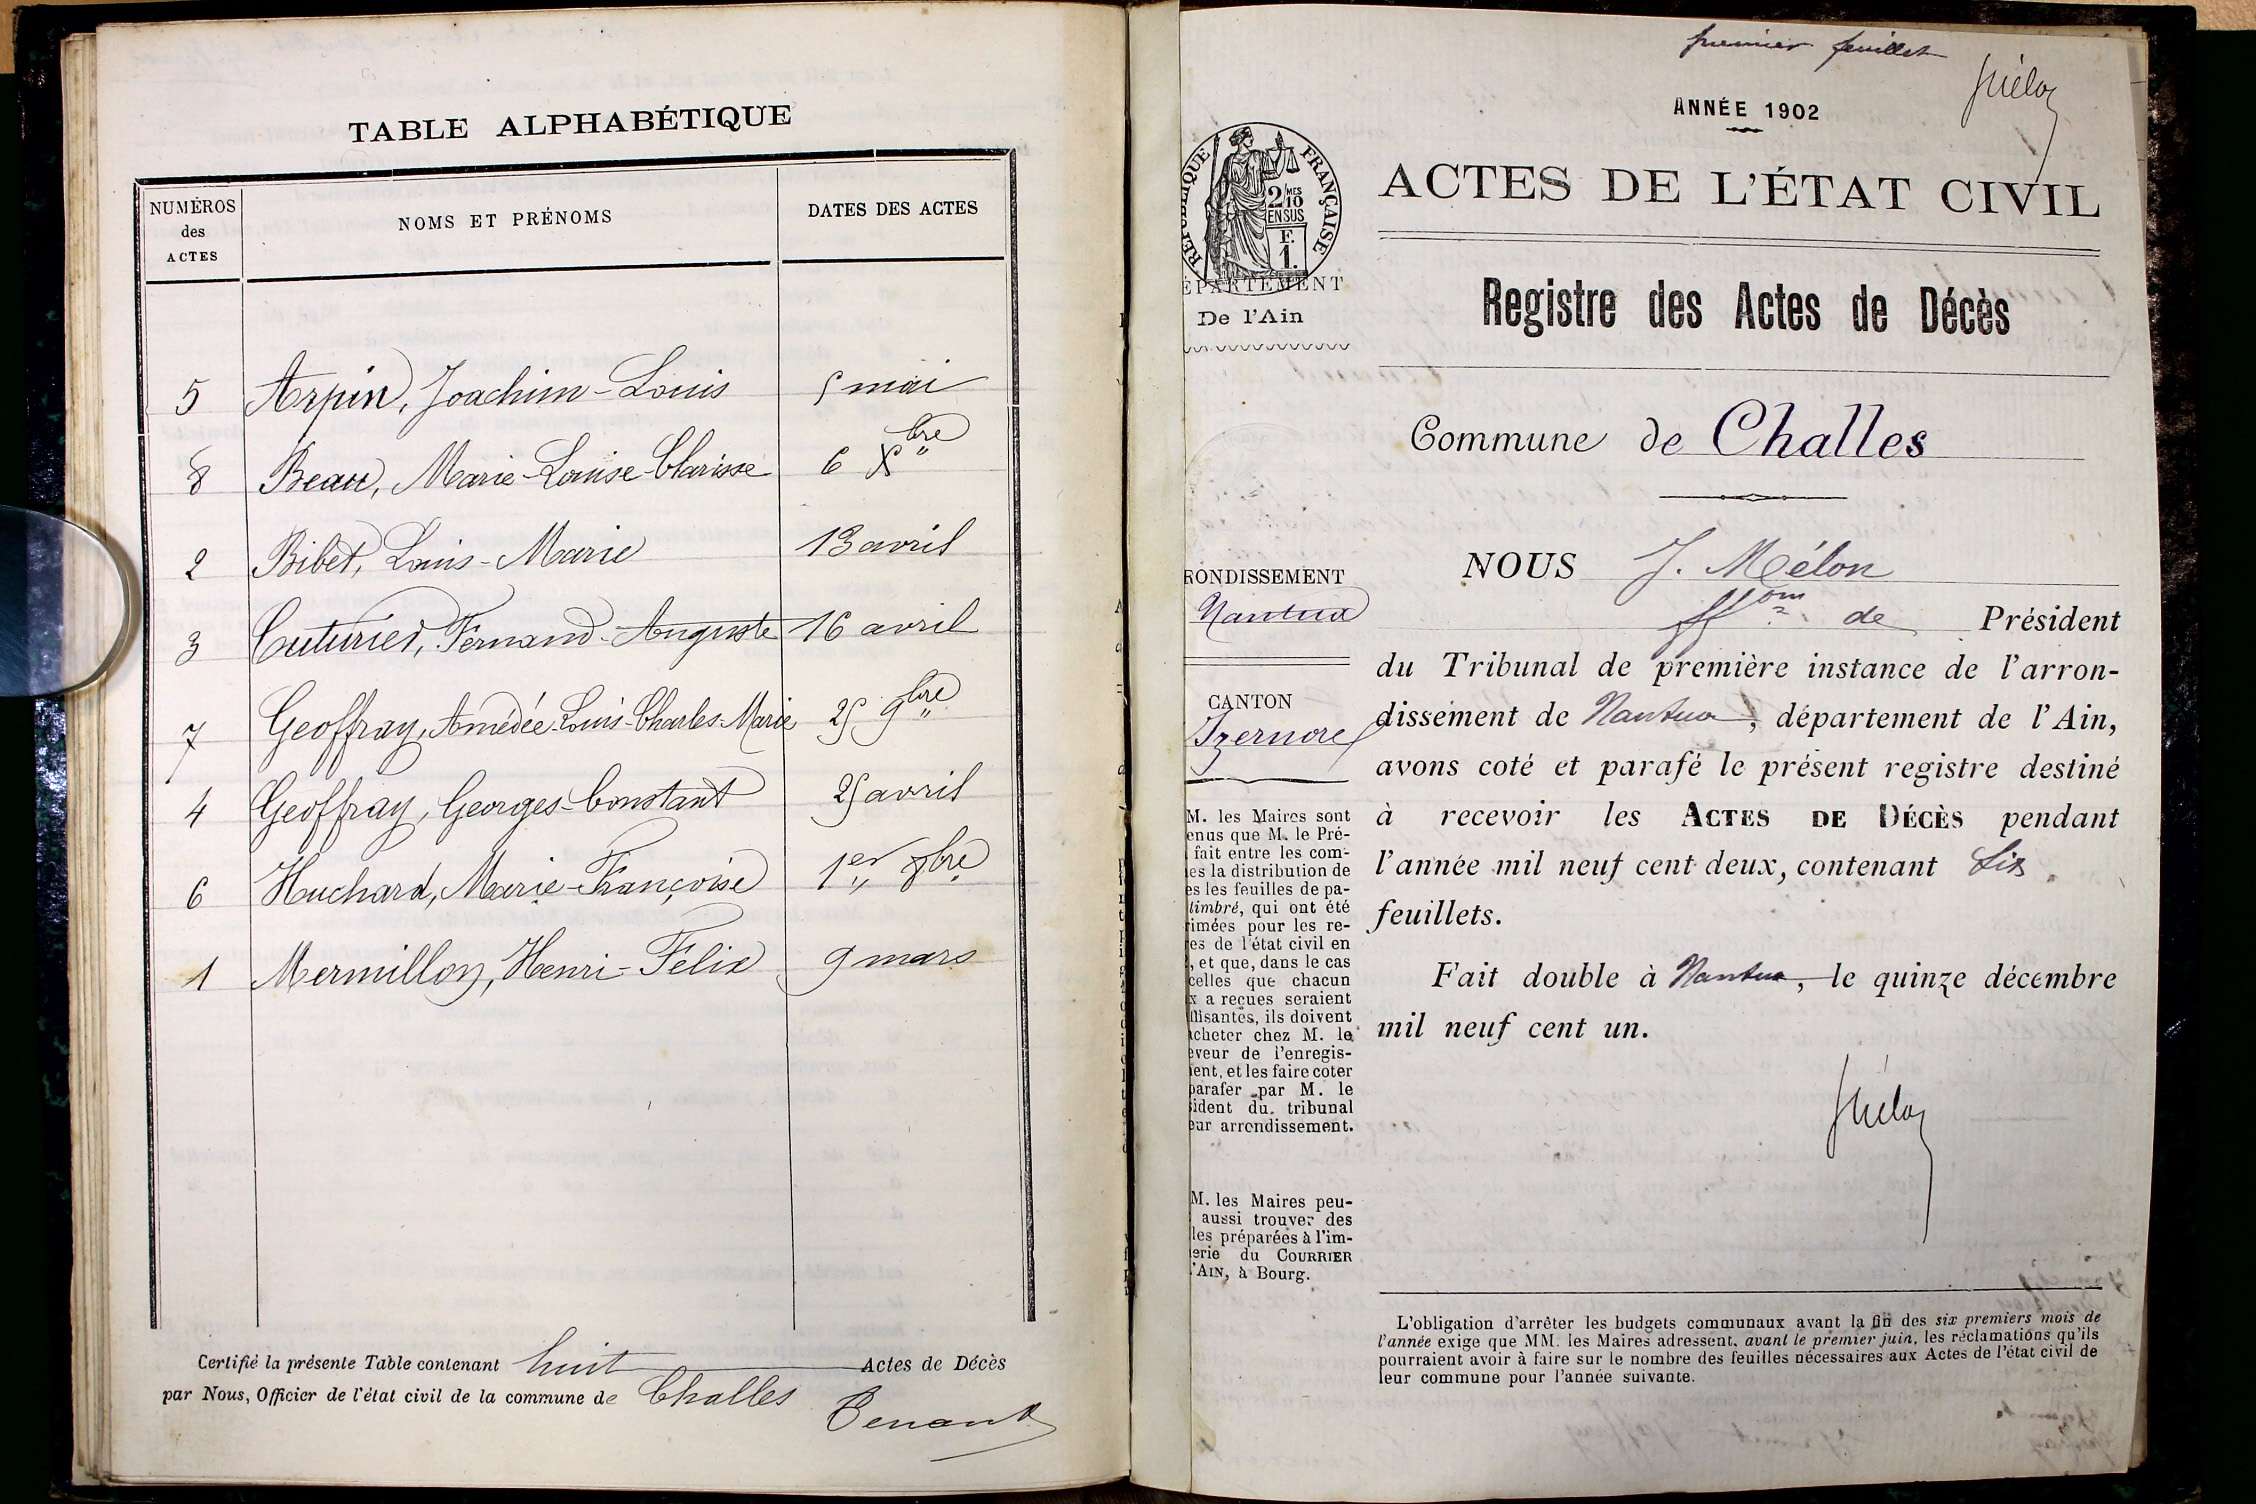 TABLE ALPHABÉTIQUE
NUMÉROS
des
ACTES
NOMS ET PRÉNOMS
DATES DES ACTES
5 Arpin, Joachim-Louis 5 mai
8 Beau, Marie-Louise Clarisse 6 Xbre
2 Bibet, Louis-Marie 13 avril
3 Cuturier, Fernand-Auguste 16 avril
7 Geoffray, Amédée-Louis-Charles-Marie 25 9bre
4 Geoffray, Georges-Constant 25 avril
6 Huchard, Marie-Françoise 1er 8bre
1 Mermillon, Henri-Félix 9 mars
Certifié la présente Table contenant huit Actes de Décès
par Nous, Officier de l'état civil de la commune de Challes
Tenand
premier feuillet
JMélon
ANNÉE 1902
ACTES DE L'ÉTAT CIVIL
RÉPUBLIQUE FRANÇAISE
2/10 MES
EN SUS
F.
1.
ÉPARTEMENT
De l'Ain
Registre des Actes de Décès
Commune de Challes
RONDISSEMENT
Nantua
CANTON
Izernore
NOUS J. Mélon
ff ons de Président
du Tribunal de première instance de l'arron-
dissement de Nantua, département de l'Ain,
avons coté et parafé le présent registre destiné
à recevoir les ACTES DE DÉCÈS pendant
l'année mil neuf cent deux, contenant Six
feuillets.
Fait double à Nantua, le quinze décembre
mil neuf cent un.
JMélon
M. les Maires sont
enus que M. le Pré-
fait entre les com-
es la distribution de
es les feuilles de pa-
timbré, qui ont été
rimées pour les re-
es de l'état civil en
, et que, dans le cas
celles que chacun
x a reçues seraient
ffisantes, ils doivent
acheter chez M. le
eveur de l'enregis-
ent, et les faire coter
parafer par M. le
sident du tribunal
eur arrondissement.
M. les Maires peu-
aussi trouver des
les préparées à l'im-
erie du COURRIER
l'AIN, à Bourg.
L'obligation d'arrêter les budgets communaux avant la fin des six premiers mois de
l'année exige que MM. les Maires adressent, avant le premier juin, les réclamations qu'ils
pourraient avoir à faire sur le nombre des feuilles nécessaires aux Actes de l'état civil de
leur commune pour l'année suivante.